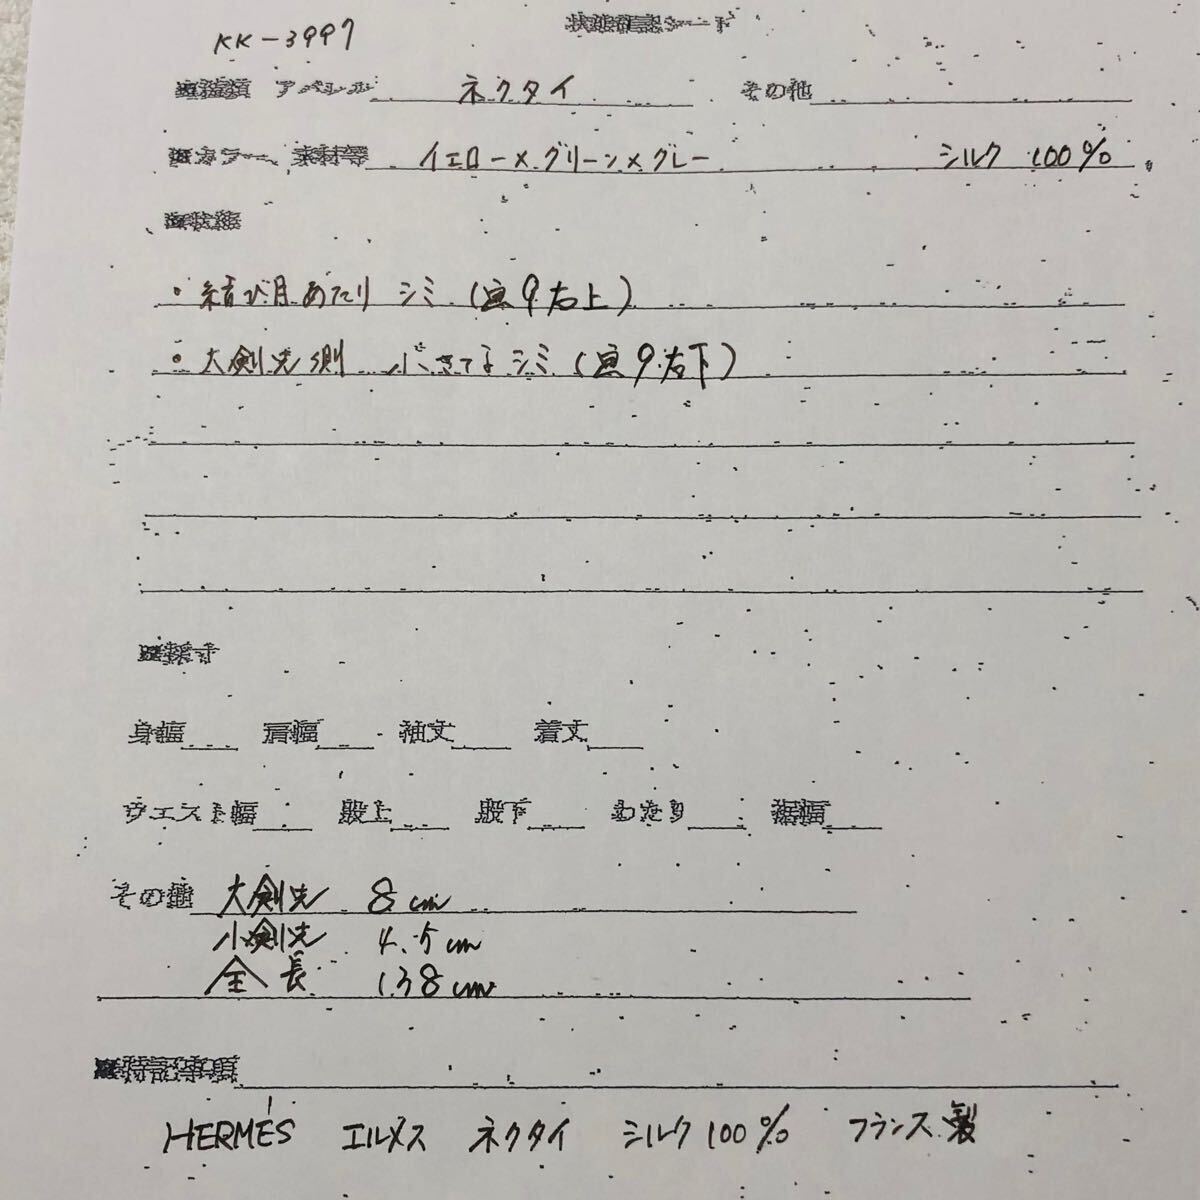 KK-3997
状態確認シート
■種類 アパレル ネクタイ その他
■カラー、素材等 イエロー×グリーン×グレー シルク 100%
■状態
・結び目あたり シミ (画9.右上)
・大剣先側 小さな シミ (画9.右下)
■採寸
身幅 肩幅 袖丈 着丈
ウエスト幅 股上 股下 わたり 裾幅
その他 大剣先 8cm
小剣先 4.5cm
全長 138cm
■特記事項
HERMÈS エルメス ネクタイ シルク100% フランス製